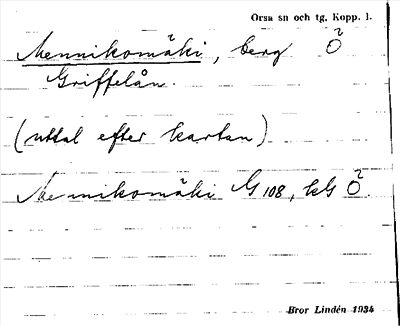 Orsa sn och tg. Kopp. l.
Mennikomäki, berg Ö
Griffelån.
(uttal efter kartan)
Mennikomäki G 108, kG Ö.
Bror Lindén 1934